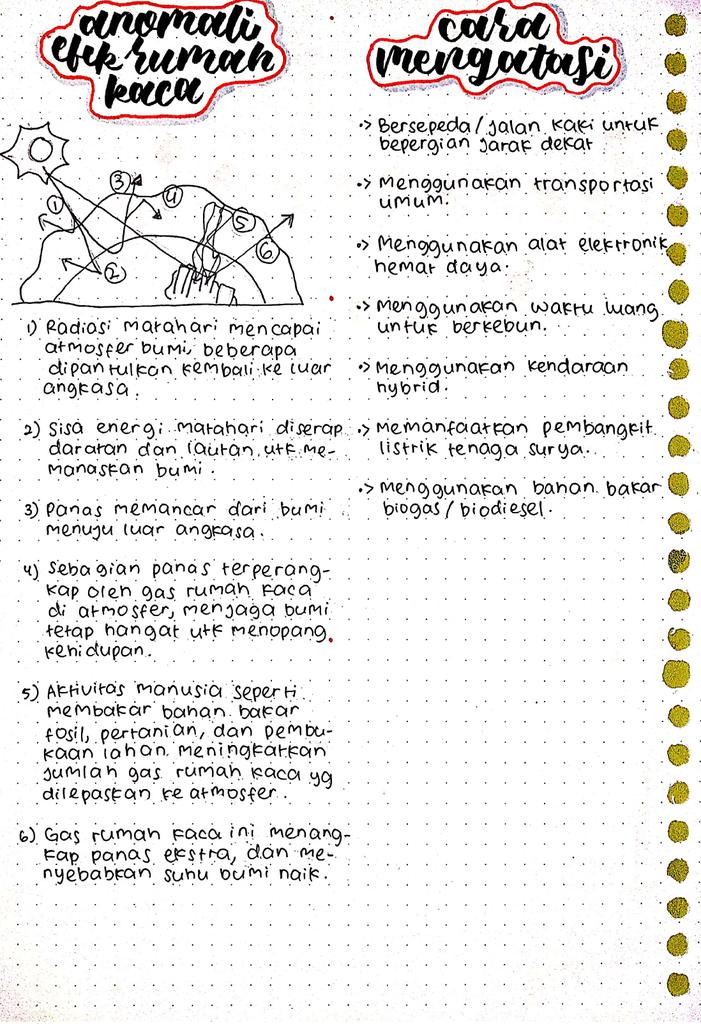 anomali
efek rumah
kaca
1
2
3
4
5
6
1) Radiasi matahari mencapai
atmosfer bumi, beberapa
dipantulkan kembali ke luar
angkasa.
2) Sisa energi matahari diserap
daratan dan lautan utk me-
manaskan bumi.
3) Panas memancar dari bumi
menuju luar angkasa.
4) Sebagian panas terperang-
kap oleh gas rumah kaca
di atmosfer, menjaga bumi
tetap hangat utk menopang
kehidupan.
5) Aktivitas manusia seperti
membakar bahan bakar
fosil, pertanian, dan pembu-
kaan lahan meningkatkan
jumlah gas rumah kaca yg
dilepaskan ke atmosfer.
6) Gas rumah kaca ini menang-
kap panas ekstra, dan me-
nyebabkan suhu bumi naik.
cara
mengatasi
•> Bersepeda/jalan kaki untuk
bepergian jarak dekat
•> Menggunakan transportasi
umum.
•> Menggunakan alat elektronik
hemat daya.
•> Menggunakan waktu luang
untuk berkebun.
•> Menggunakan kendaraan
hybrid.
•> Memanfaatkan pembangkit
listrik tenaga surya.
•> Menggunakan bahan bakar
biogas/biodiesel.